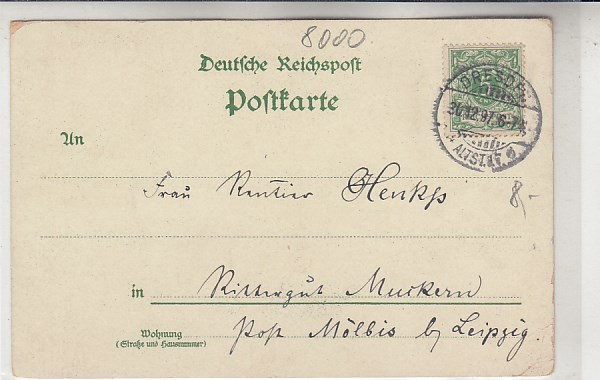 8000.
Deutsche Reichspost
Postkarte
DRESDEN
20.12.97. 6-7
ALTST.
An
Frau Rentier Henkß
8,-
in Rittergut Muckern
Wohnung
(Straße und Hausnummer)
Post Mölbis b/ Leipzig.